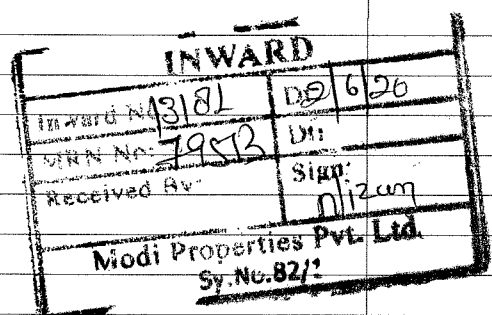 INWARD
Inward No 13182 Dt: 2/6/20
MRN No: Dt:
Received By: Sign:
nizam
Modi Properties Pvt. Ltd.
Sy.No.82/1